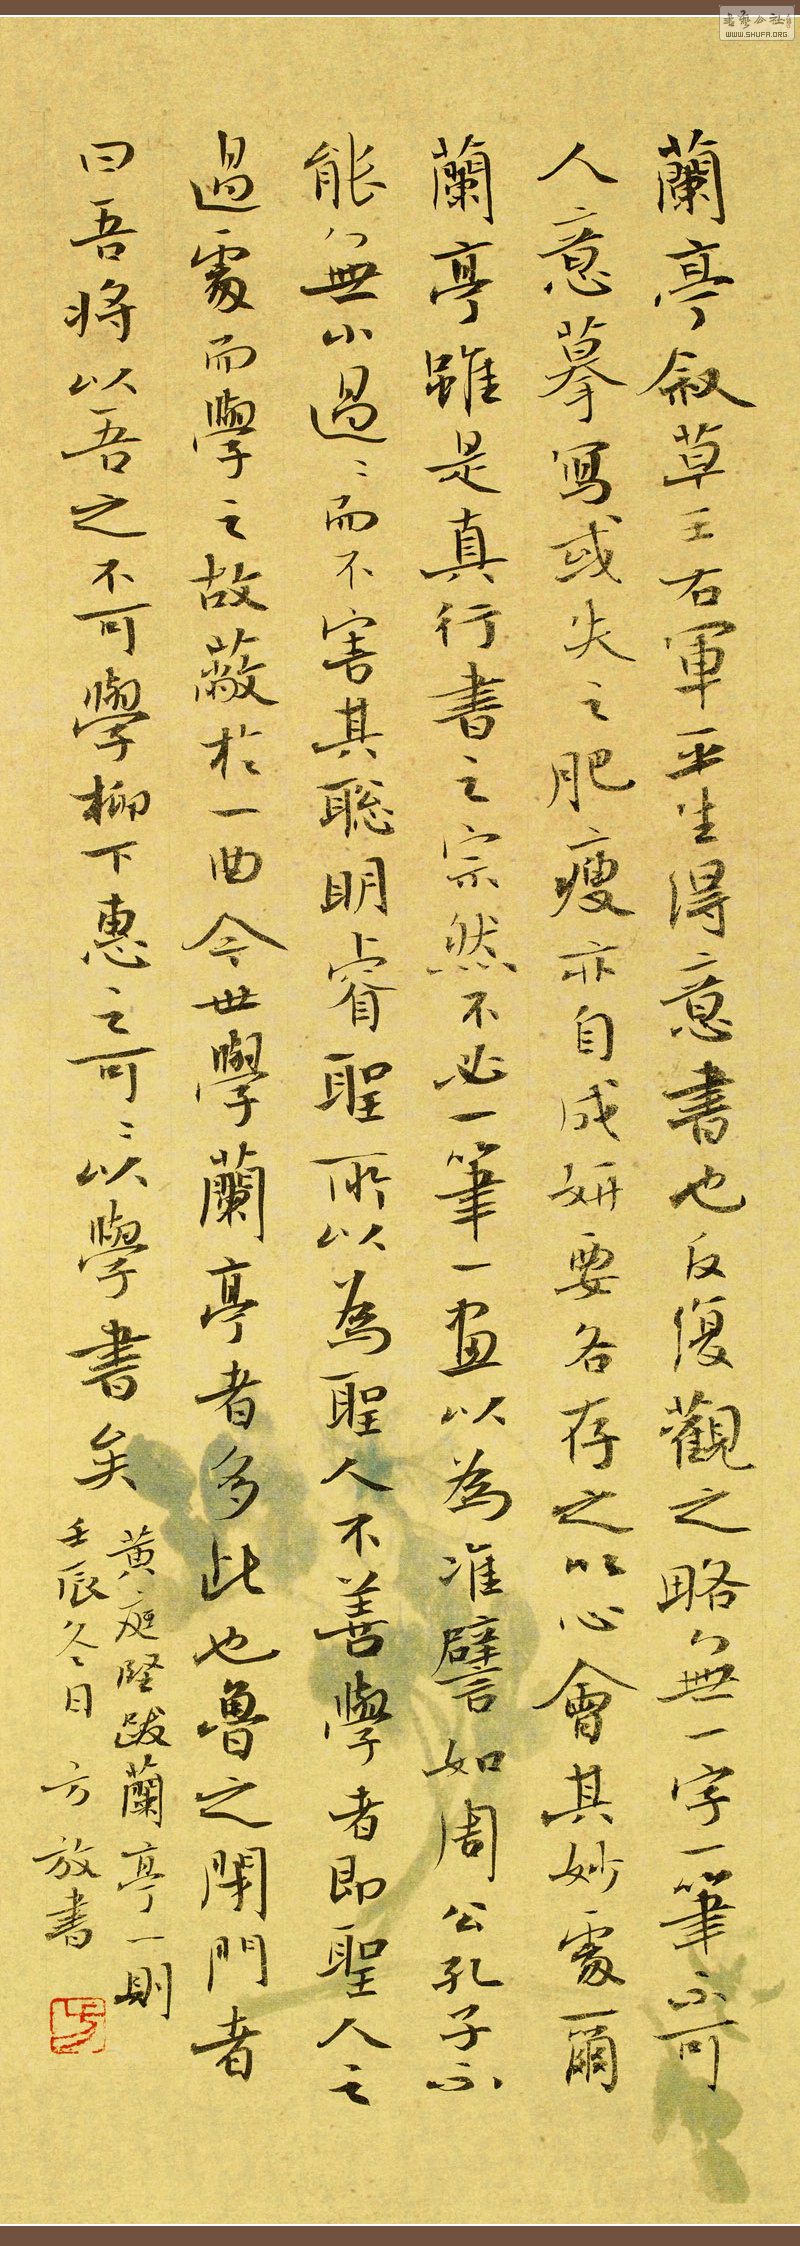 蘭亭叙草王右軍平生得意書也反復觀之略無一字一筆不可
人意摹寫或失之肥瘦亦自成妍要各存之以心會其妙處爾
蘭亭雖是真行書之宗然不必一筆一畫以為准譬如周公孔子不
能無小過過而不害其聰明睿聖所以為聖人不善學者即聖人之
過處而學之故蔽於一曲今世學蘭亭者多此也魯之閉門者
曰吾將以吾之不可學柳下惠之可可以學書矣
黄庭堅跋蘭亭一則
壬辰冬日 方放書
書藝公社
WWW.SHUFA.ORG